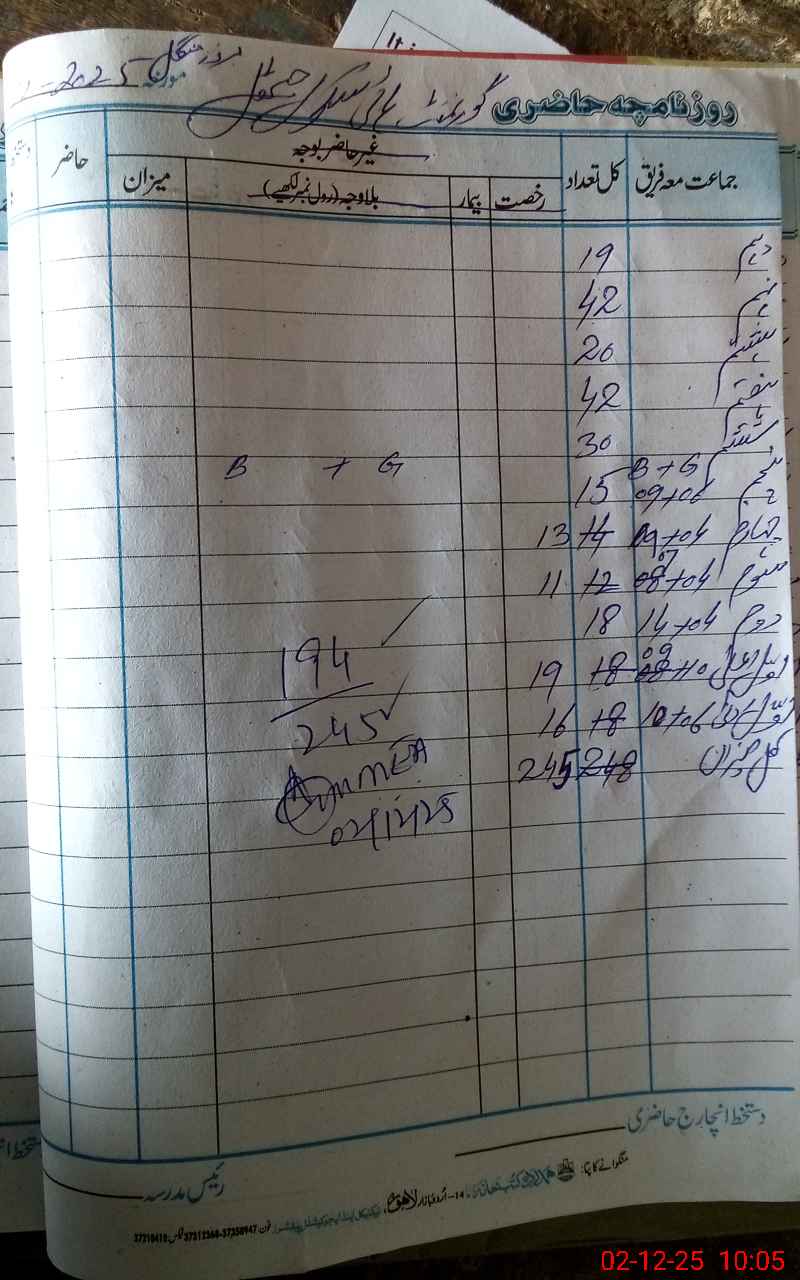 بروز منگل
مورخہ 2025
روزنامچہ حاضری گورنمنٹ ہائی سکول
جماعت معہ فریق کل تعداد غیر حاضر بوجہ حاضر
رخصت بیمار بلاوجہ (رول نمبر لکھیے) میزان
دہم 19
نہم 42
ہشتم 20
ہفتم 42
ششم 30
B + G B + G
پنجم 09+06 15
چہارم 09+04 14 13
سوئم 07 08+04 12 11
دوم 14+04 18
اول اعلیٰ 09 08+10 18 19
اول ادنیٰ 10+06 18 16
کل میزان 248 245
194
245
02/12/25
دستخط انچارج حاضری
رئیس مدرسہ
منگوانے کا پتا: ہمدرد کتب خانہ 14-اردو بازار لاہور فون 37358947-37312368 فیکس: 37210418
02-12-25 10:05